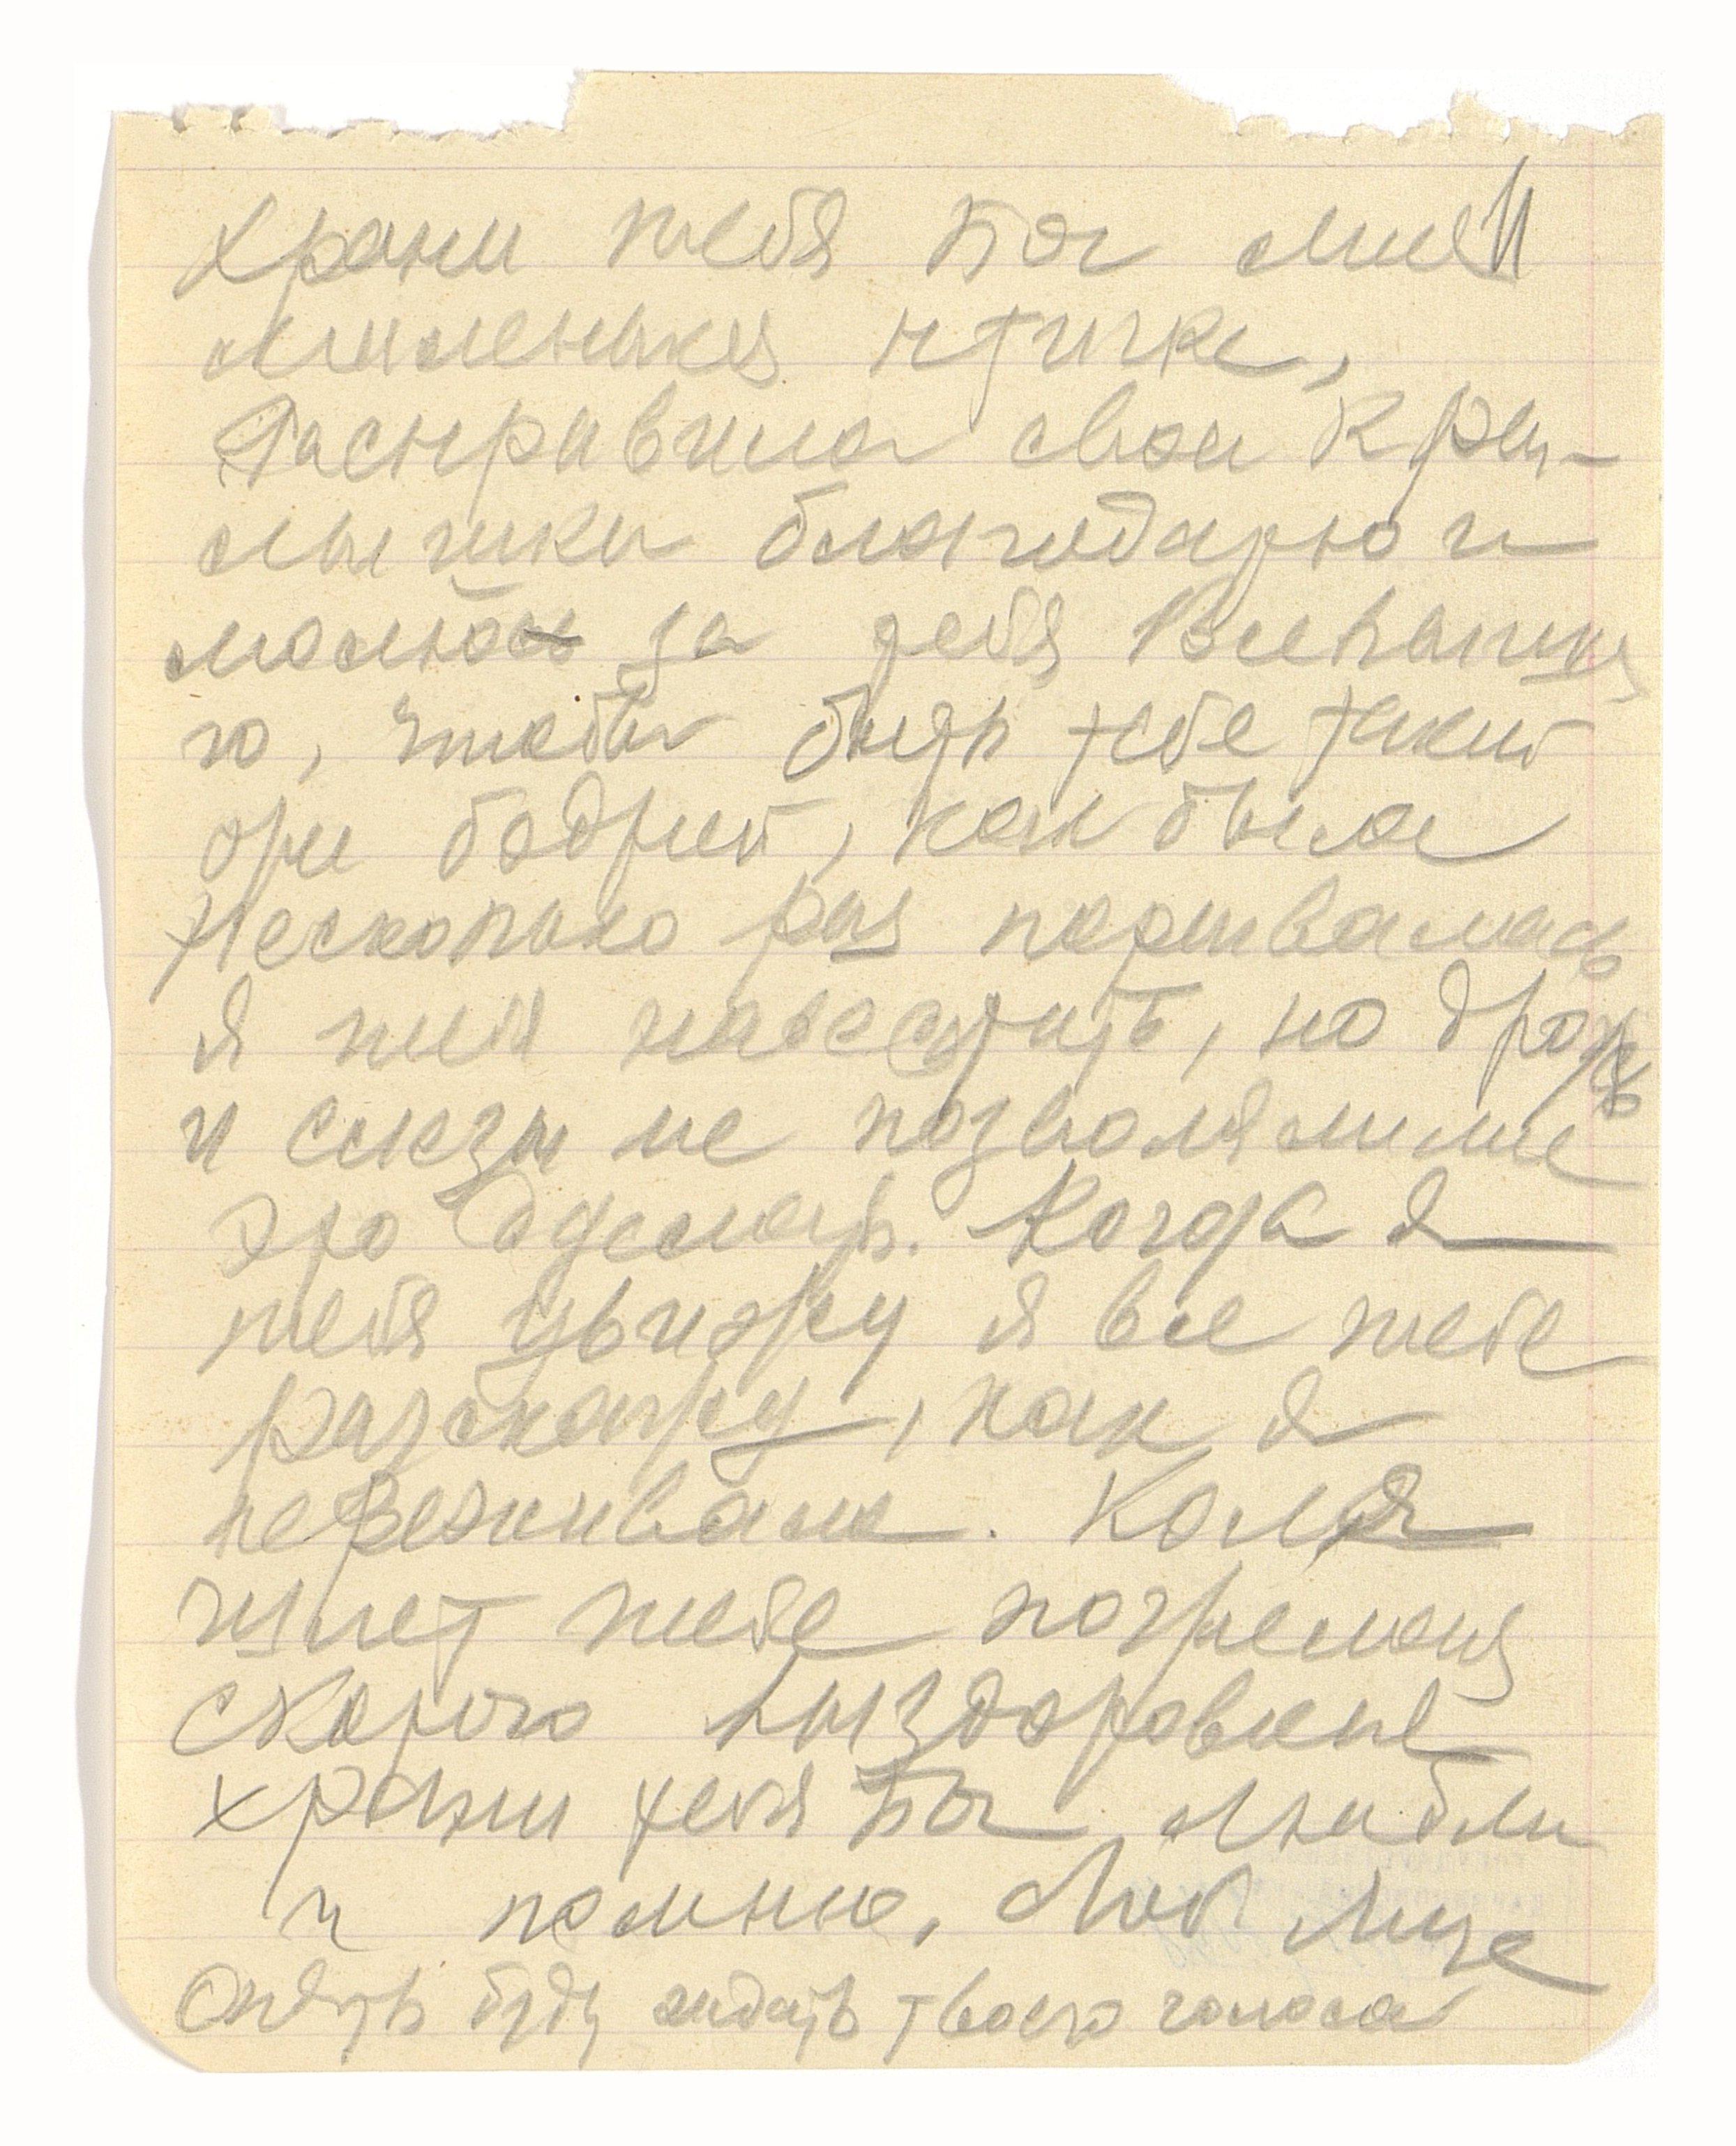 Храни тебя Бог мий
миленькая птичка,
Расправила свои кры-
лышки благодарю и
молюсь за тебя Всевышня
го, чтобы быть тебе такой
бодрой, как была
Несколько раз порывалась
я тебя навестить, но дрожь
и слезы не позволяли мне
это сделать. Когда я
тебя увижу я все тебе
разскажу, как я
переживала. Коля
шлет тебе пожелания
скорого выздоровления
храни тебя Бог Люблю
и помню. Люб Лиза
Опять буду ждать твоего голоса